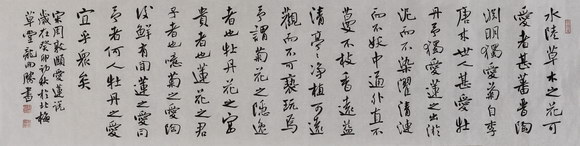 水陸草木之花可
愛者甚蕃晉陶
淵明獨愛菊自李
唐来世人甚愛牡
丹予獨愛蓮之出淤
泥而不染濯清漣
而不妖中通外直不
蔓不枝香遠益
清亭亭淨植可遠
觀而不可褻玩焉
予謂菊花之隱逸
者也牡丹花之富
貴者也蓮花之君
子者也噫菊之愛陶
後鮮有聞蓮之愛同
予者何人牡丹之愛
宜乎眾矣
宋周敦頤愛蓮說
歲在癸卯初秋於北梅
草堂龍開勝書